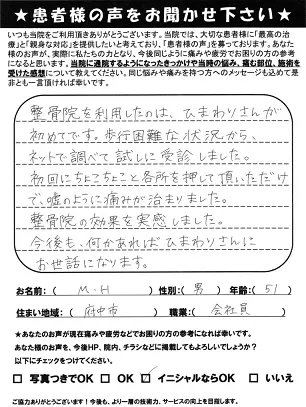 ★患者様の声をお聞かせ下さい★
いつも当院をご利用頂きありがとうございます。当院では、大切な患者様に「最高の治
療」と「親身な対応」を提供したいと考えており、「患者様の声」を募っております。あなた
様のお声が、実際に私たちの力となり、今後同じように痛みや疲労でお困りの方の参考
になると思います。当院に通院するようになったきっかけや当時の悩み、痛む部位、施術を
受けた感想について教えてください。同じ悩みや痛みを持つ方へのメッセージも込めて是
非とも一言頂ければ幸いです。
整骨院を利用したのは、ひまわりさんが
初めてです。歩行困難な状況から、
ネットで調べて試しに受診しました。
初回にちょこちょこと各所を押して頂いただけ
で、嘘のように痛みが治まりました。
整骨院の効果を実感しました。
今後も、何かあればひまわりさんに
お世話になります。
お名前:( M・H ) 性別:( 男 ) 年齢:( 51 )
住まい地域:( 府中市 ) 職業:( 会社員 )
★あなたのお声が現在痛みや疲労などでお困りの方の参考になれば幸いです。
あなた様のお声を、今後HP、院内、チラシなどに掲載してもよろしいでしょうか?
以下にチェックをつけてください。
□ 写真つきでOK □ OK ☑ イニシャルならOK □ いいえ
ご協力ありがとうございます!今後も、より一層の技術力、サービスの向上を目指します。